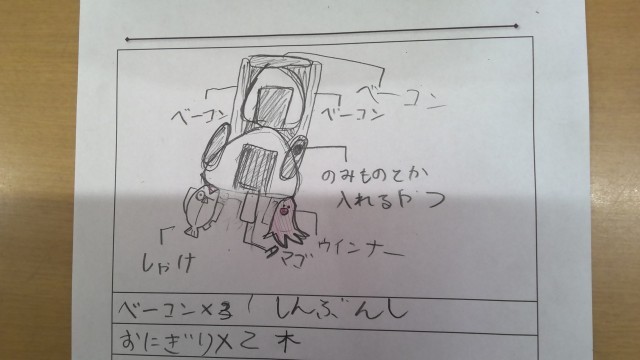 ベーコン
ベーコン
ベーコン
のみものとか
入れるやつ
しゃけ
マゴ
ウインナー
ベーコン×3 しんぶんし
おにぎり×2 木